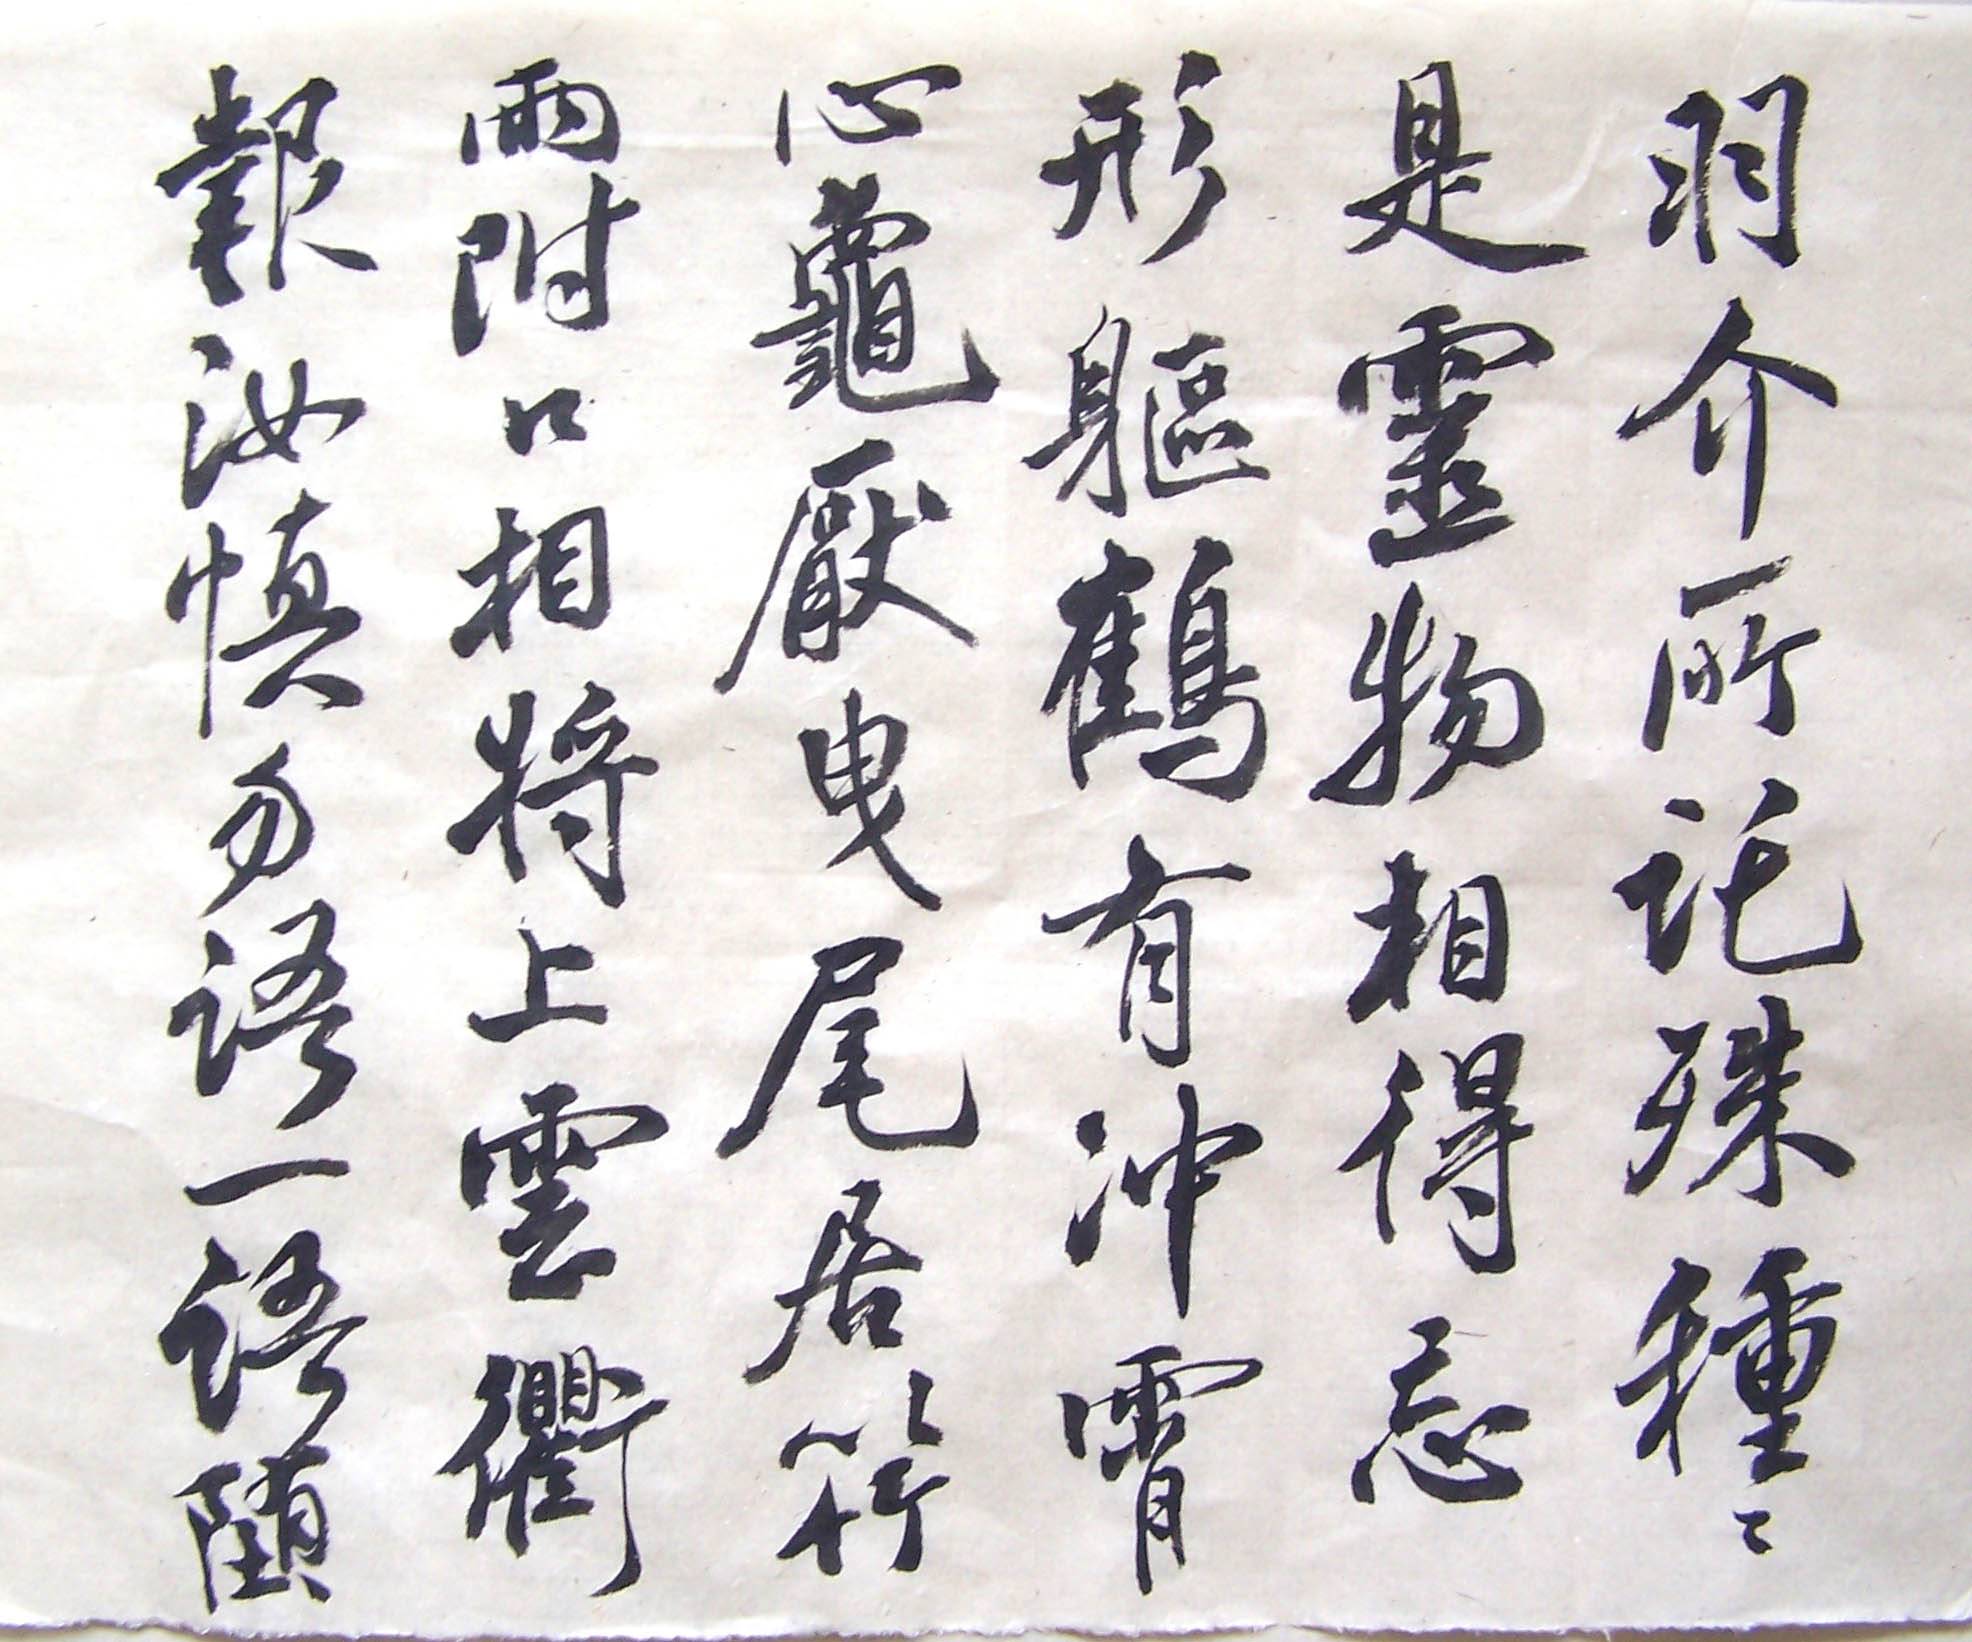 羽介所託殊種〻
是靈物相得忘
形軀鶴有沖霄
心龜厭曳尾居竹
兩附口相將上雲衢
報汝慎勿語一語墮